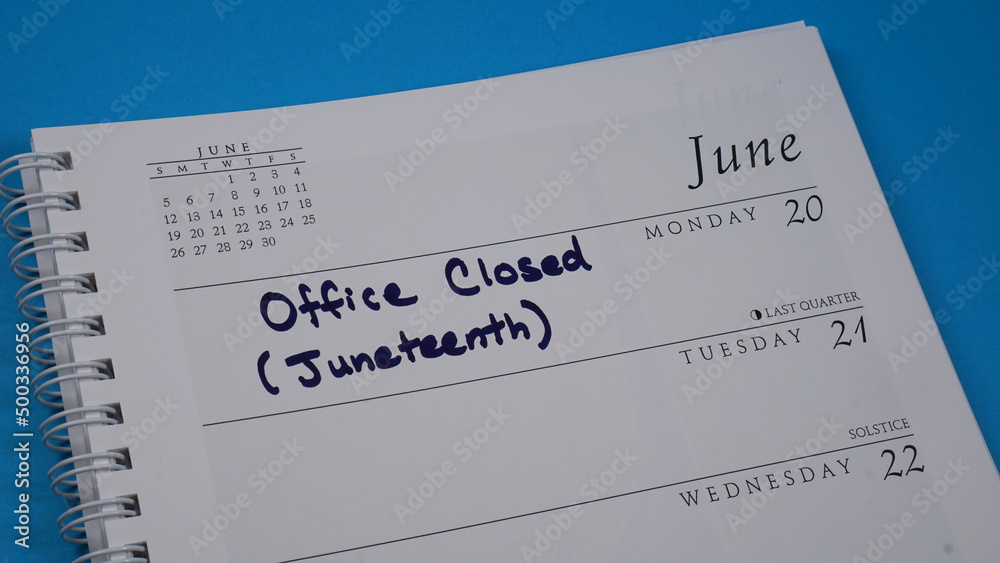 JUNE
S M T W T F S
1 2 3 4
5 6 7 8 9 10 11
12 13 14 15 16 17 18
19 20 21 22 23 24 25
26 27 28 29 30
June
MONDAY 20
Office Closed
(Juneteenth)
LAST QUARTER
TUESDAY 21
SOLSTICE
WEDNESDAY 22
Adobe Stock | #500336956